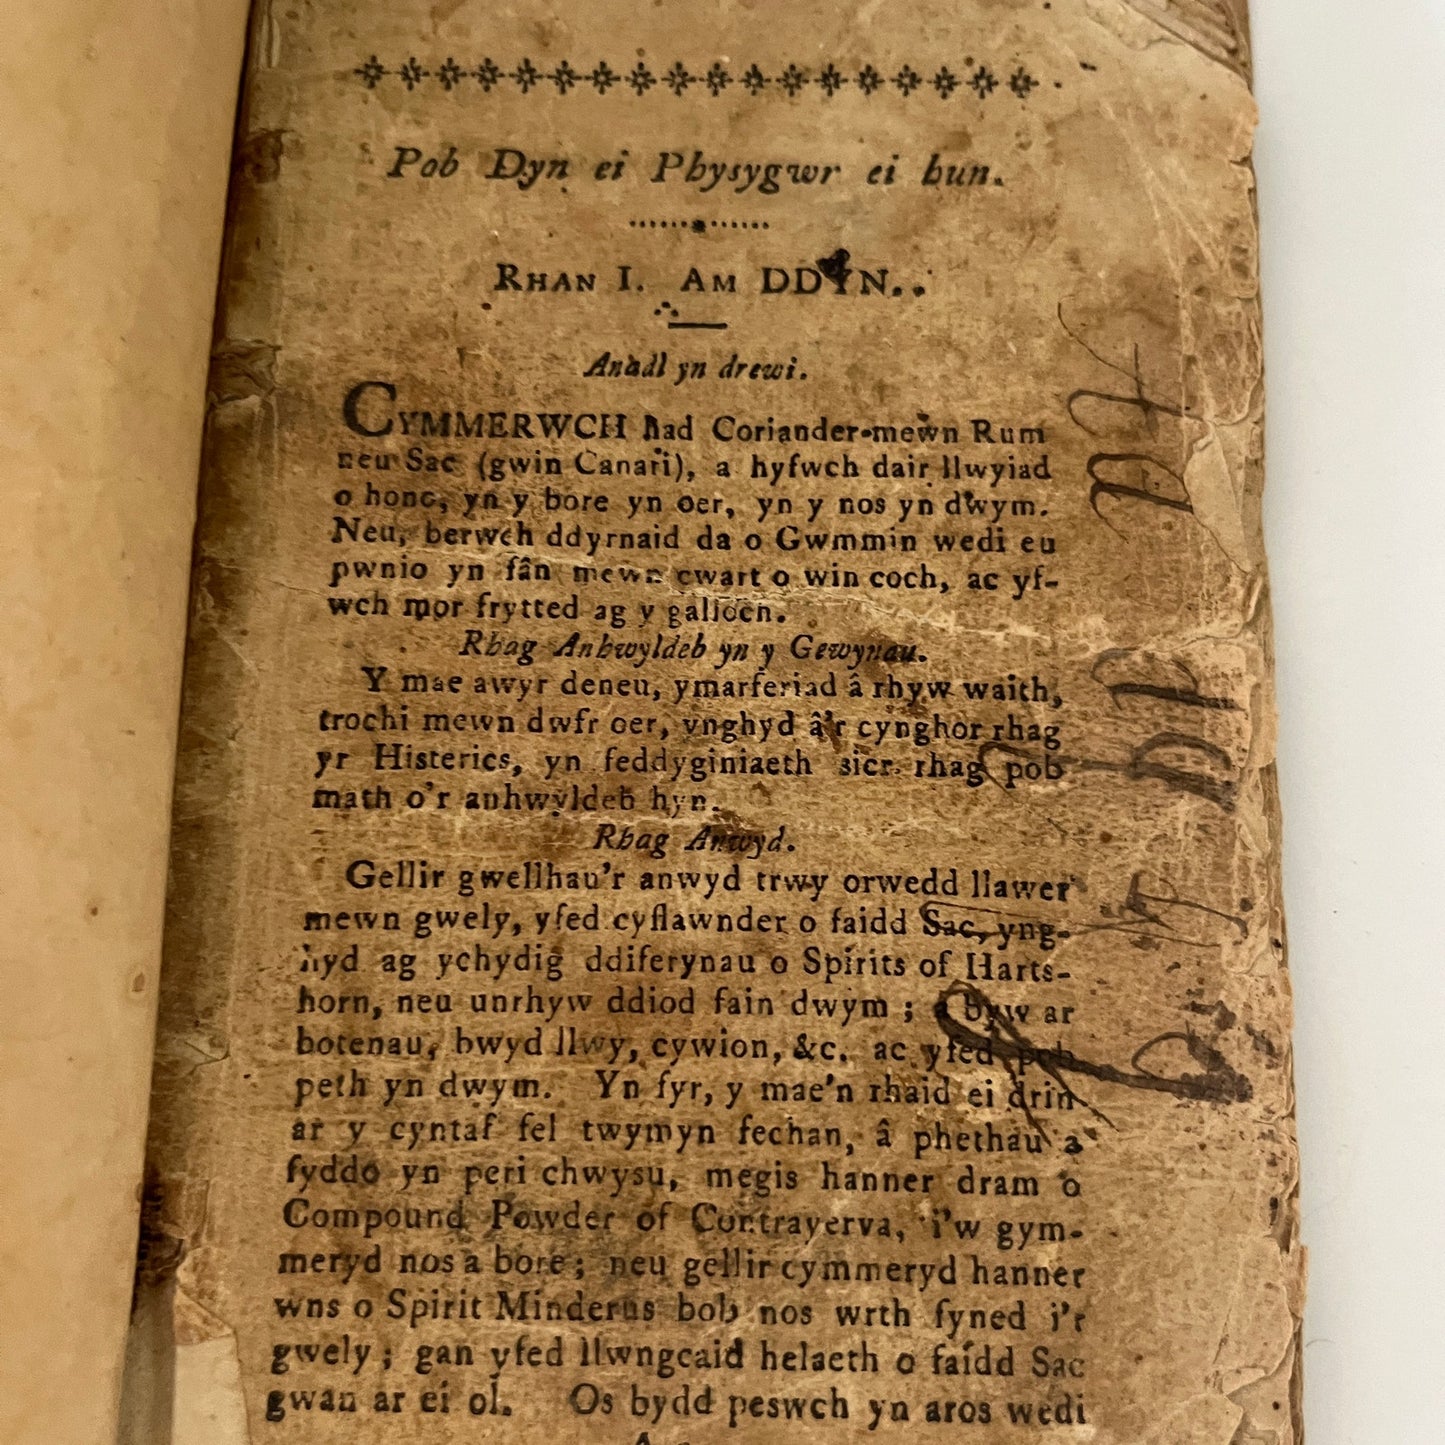 Pob Dyn ei Physygwr ei hun.
RHAN I. AM DDYN.
Anadl yn drewi.
CYMMERWCH had Coriander mewn Rum
neu Sac (gwin Canari), a hyfwch dair llwyiad
o hono, yn y bore yn oer, yn y nos yn dwym.
Neu, berwch ddyrnaid da o Gwmmin wedi eu
pwnio yn fân mewn cwart o win coch, ac yf-
wch mor frytted ag y galloch.
Rhag Anhwyldeb yn y Gewynau.
Y mae awyr deneu, ymarferiad â rhyw waith,
trochi mewn dwfr oer, ynghyd â'r cynghor rhag
yr Histerics, yn feddyginiaeth sicr rhag pob
math o'r anhwyldeb hyn.
Rhag Anwyd.
Gellir gwellhau'r anwyd trwy orwedd llawer
mewn gwely, yfed cyflawnder o faidd Sac, yng-
hyd ag ychydig ddiferynau o Spirits of Harts-
horn, neu unrhyw ddiod fain dwym ; a byw ar
botenau, bwyd llwy, cywion, &c. ac yfed pob
peth yn dwym. Yn fyr, y mae'n rhaid ei drin
ar y cyntaf fel twymyn fechan, â phethau a
fyddo yn peri chwysu, megis hanner dram o
Compound Powder of Contrayerva, i'w gym-
meryd nos a bore ; neu gellir cymmeryd hanner
wns o Spirit Minderus bob nos wrth fyned i'r
gwely ; gan yfed llwngcaid helaeth o faidd Sac
gwan ar ei ol. Os bydd peswch yn aros wedi